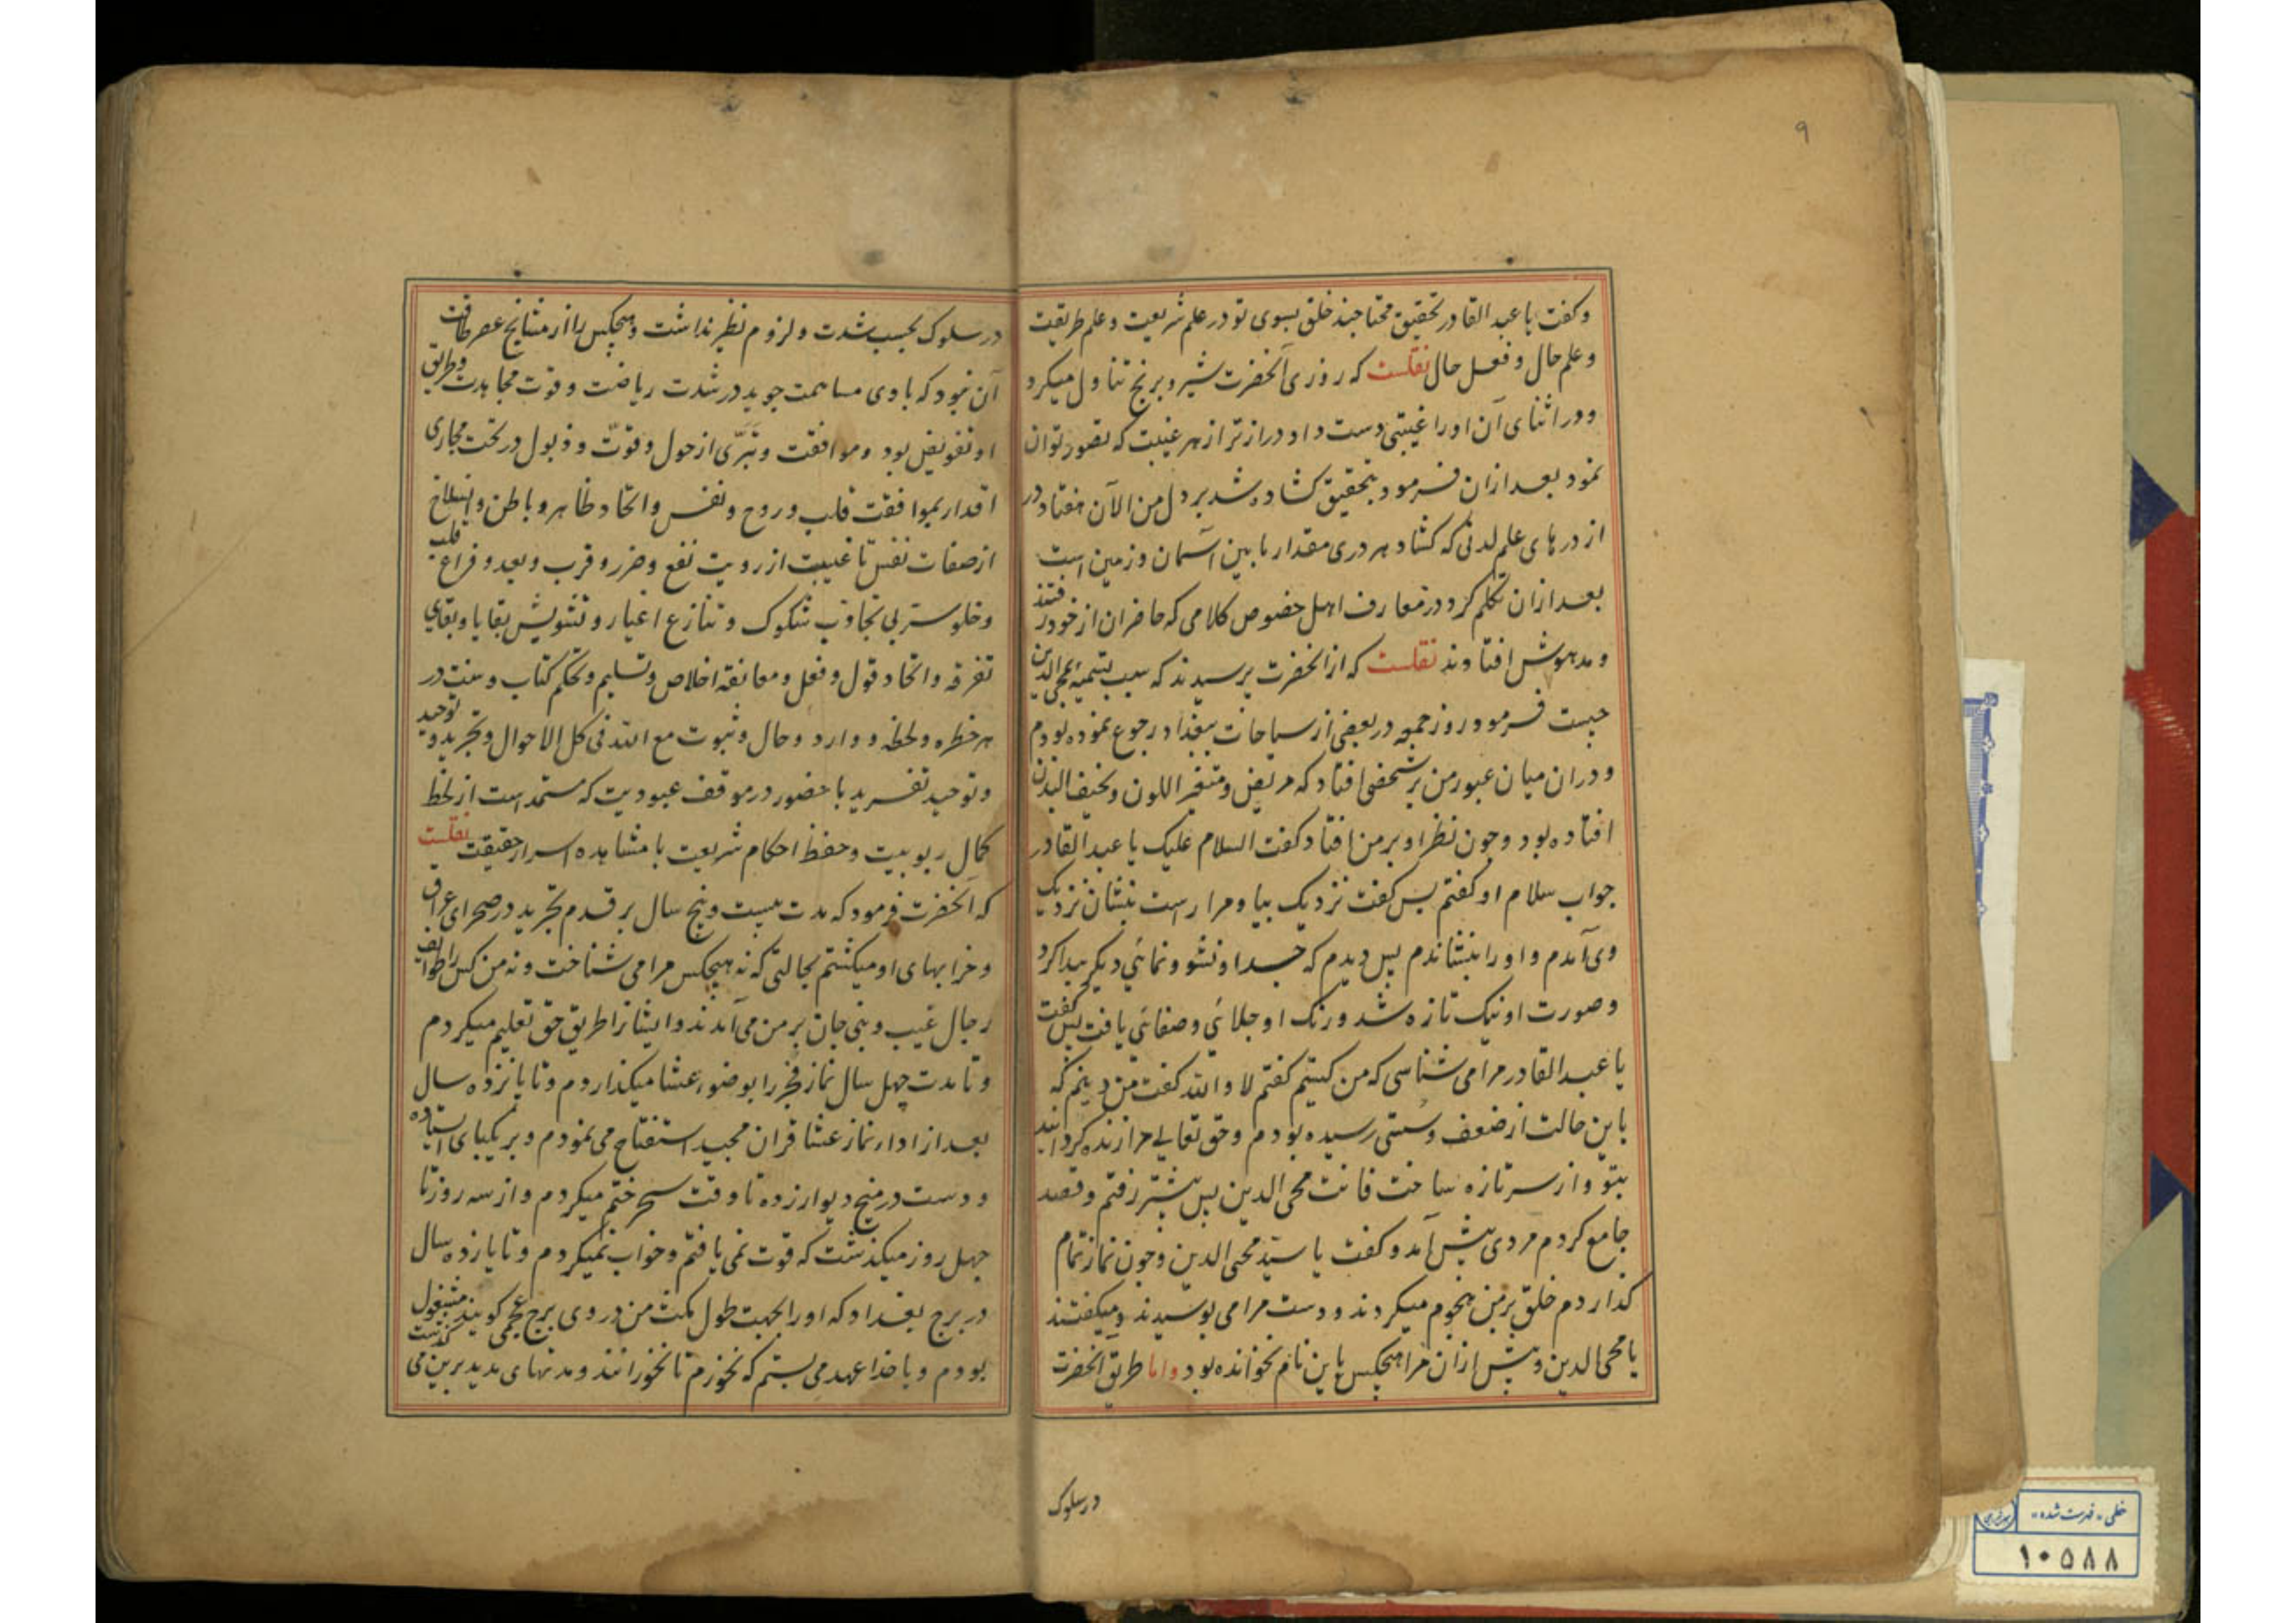 ۹
وکفت یا عبد القادر تحقیق محتاجند خلق بسوی تو در علم شریعت و علم طریقت
و علم حال و فعل حال نقلست که روزی آنحضرت شیر و برنج تناول میکرد
و در اثنای آن او را غیبتی دست داد دراز تر از هر غیبت که تصور توان
نمود بعد ازان فرمود بتحقیق کشاده شد بر دل من الآن هفتاد در
از درهای علم لدنی که کشاد هر دری مقدار ما بین آسمان و زمین است
بعد ازان تکلم کرد در معارف اهل خصوص کلامی که حاضران از خود رفتند
و مدهوش افتادند نقلست که از آنحضرت پرسیدند که سبب تسمیه بمحی الدین
چیست فرمود روز جمعه در بعضی از سیاحات ببغداد رجوع نموده بودم
و دران میان عبور من بر شخصی افتاد که مریض و متغیر اللون و نحیف البدن
افتاده بود و چون نظر او بر من افتاد کفت السلام علیک یا عبد القادر
جواب سلام او کفتم پس کفت نزدیک بیا و مرا راست بنشان نزدیک
وی آمدم و او را بنشاندم پس دیدم که جسد او نشو و نمائی دیکر پیدا کرد
و صورت او نیک تازه شد و رنک او جلائی و صفائی یافت پس کفت
یا عبد القادر مرا می شناسی که من کیستم کفتم لا والله کفت من دینم که
باین حالت از ضعف و سستی رسیده بودم و حق تعالی مرا زنده کردانید
بتو و از سر تازه ساخت فانت محی الدین پس پیشتر رفتم و قصد
جامع کردم مردی پیش آمد و کفت یا سید محی الدین و چون نماز تمام
کذاردم خلق بر من هجوم میکردند و دست مرا می بوسیدند و میکفتند
یا محی الدین و پیش ازان مرا هیچکس باین نام نخوانده بود و اما طریق آنحضرت
در سلوک
در سلوک بحسب شدت و لزوم نظیر نداشت و هیچکس را از مشایخ عصر طاقت
آن نبود که با وی مساهمت جوید در شدت ریاضت و قوت مجاهدت و طریق
او تفویض بود و موافقت و تبری از حول و قوت و ذبول در تحت مجاری
اقدار بموافقت قلب و روح و نفس و اتحاد ظاهر و باطن و انسلاخ
از صفات نفس با غیبت از رویت نفع و ضرر و قرب و بعد و فراغ قلب
و خلو سر بی تجاذب شکوک و تنازع اغیار و تشویش بقایا و بقای
تفرقه و اتحاد قول و فعل و معانقه اخلاص و تسلیم و تحکم کتاب و سنت در
هر خطره و لحظه و وارد و حال و ثبوت مع الله فی کل الاحوال و تجرید و توحید
و توحید تفرید با حضور در موقف عبودیت که مستمد است از لحظ
کمال ربوبیت و حفظ احکام شریعت با مشاهده اسرار حقیقت نقلست
که آنحضرت فرمود که مدت بیست و پنج سال بر قدم تجرید در صحرای عراق
و خرابهای او میکشتم بحالتی که نه هیچکس مرا می شناخت و نه من کس را طوایف
رجال غیب و بنی جان بر من می آمدند و ایشانرا طریق حق تعلیم میکردم
و تا مدت چهل سال نماز فجر را بوضوء عشا میکذاردم و تا پانزده سال
بعد از اداء نماز عشا قران مجید استفتاح می نمودم و بر یکپای ایستاده
و دست در میخ دیوار زده تا وقت سحر ختم میکردم و از سه روز تا
چهل روز میکذشت که قوت نمی یافتم و خواب نمیکردم و تا یازده سال
در برج بغداد که او را بجهت طول مکث من در وی برج عجمی کویند مشغول
بودم و با خدا عهد می بستم که نخورم تا نخورانند و مدتهای مدید برین می کذشت
خطی «فهرست شده»
۱۰۵۸۸